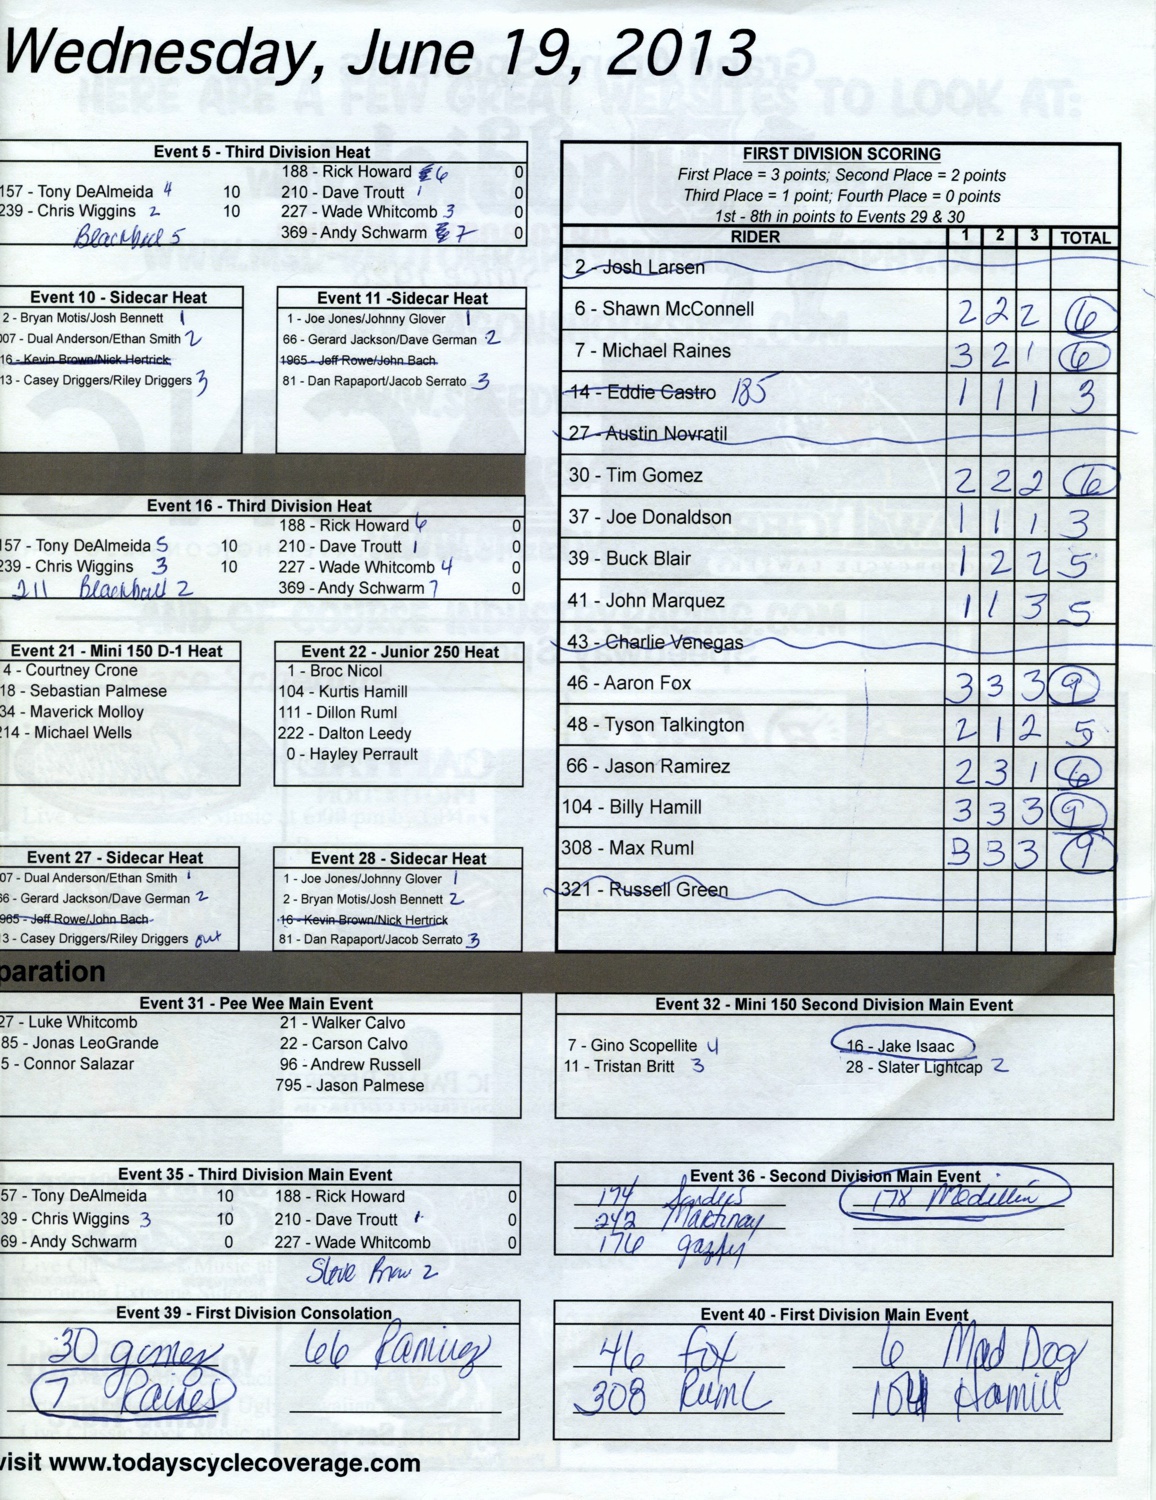 Wednesday, June 19, 2013
Event 5 - Third Division Heat
188 - Rick Howard 6 0
157 - Tony DeAlmeida 4 10
210 - Dave Troutt 1 0
239 - Chris Wiggins 2 10
227 - Wade Whitcomb 3 0
Blackball 5
369 - Andy Schwarm 7 0
Event 10 - Sidecar Heat
2 - Bryan Motis/Josh Bennett 1
007 - Dual Anderson/Ethan Smith 2
16 - Kevin Brown/Nick Hertrick
13 - Casey Driggers/Riley Driggers 3
Event 11 -Sidecar Heat
1 - Joe Jones/Johnny Glover 1
66 - Gerard Jackson/Dave German 2
1965 - Jeff Rowe/John Bach
81 - Dan Rapaport/Jacob Serrato 3
Event 16 - Third Division Heat
188 - Rick Howard 6 0
157 - Tony DeAlmeida 5 10
210 - Dave Troutt 1 0
239 - Chris Wiggins 3 10
227 - Wade Whitcomb 4 0
211 Blackball 2
369 - Andy Schwarm 7 0
Event 21 - Mini 150 D-1 Heat
4 - Courtney Crone
18 - Sebastian Palmese
34 - Maverick Molloy
214 - Michael Wells
Event 22 - Junior 250 Heat
1 - Broc Nicol
104 - Kurtis Hamill
111 - Dillon Ruml
222 - Dalton Leedy
0 - Hayley Perrault
Event 27 - Sidecar Heat
07 - Dual Anderson/Ethan Smith 1
66 - Gerard Jackson/Dave German 2
965 - Jeff Rowe/John Bach
3 - Casey Driggers/Riley Driggers out
Event 28 - Sidecar Heat
1 - Joe Jones/Johnny Glover 1
2 - Bryan Motis/Josh Bennett 2
16 - Kevin Brown/Nick Hertrick
81 - Dan Rapaport/Jacob Serrato 3
FIRST DIVISION SCORING
First Place = 3 points; Second Place = 2 points
Third Place = 1 point; Fourth Place = 0 points
1st - 8th in points to Events 29 & 30
RIDER 1 2 3 TOTAL
2 - Josh Larsen
6 - Shawn McConnell 2 2 2 6
7 - Michael Raines 3 2 1 6
14 - Eddie Castro 185 1 1 1 3
27 - Austin Novratil
30 - Tim Gomez 2 2 2 6
37 - Joe Donaldson 1 1 1 3
39 - Buck Blair 1 2 2 5
41 - John Marquez 1 1 3 5
43 - Charlie Venegas
46 - Aaron Fox 3 3 3 9
48 - Tyson Talkington 2 1 2 5
66 - Jason Ramirez 2 3 1 6
104 - Billy Hamill 3 3 3 9
308 - Max Ruml 3 3 3 9
321 - Russell Green
paration
Event 31 - Pee Wee Main Event
27 - Luke Whitcomb 21 - Walker Calvo
85 - Jonas LeoGrande 22 - Carson Calvo
5 - Connor Salazar 96 - Andrew Russell
795 - Jason Palmese
Event 32 - Mini 150 Second Division Main Event
7 - Gino Scopellite 4 16 - Jake Isaac
11 - Tristan Britt 3 28 - Slater Lightcap 2
Event 35 - Third Division Main Event
57 - Tony DeAlmeida 10 188 - Rick Howard 0
39 - Chris Wiggins 3 10 210 - Dave Troutt 1 0
69 - Andy Schwarm 0 227 - Wade Whitcomb 0
Steve 2
Event 36 - Second Division Main Event
174 Sanders 178 Medellin
242 Martinay
176
Event 39 - First Division Consolation
30 gomez 66 Ramirez
7 Raines
Event 40 - First Division Main Event
46 Fox 6 Mad Dog
308 Ruml 104 Hamill
visit www.todayscyclecoverage.com